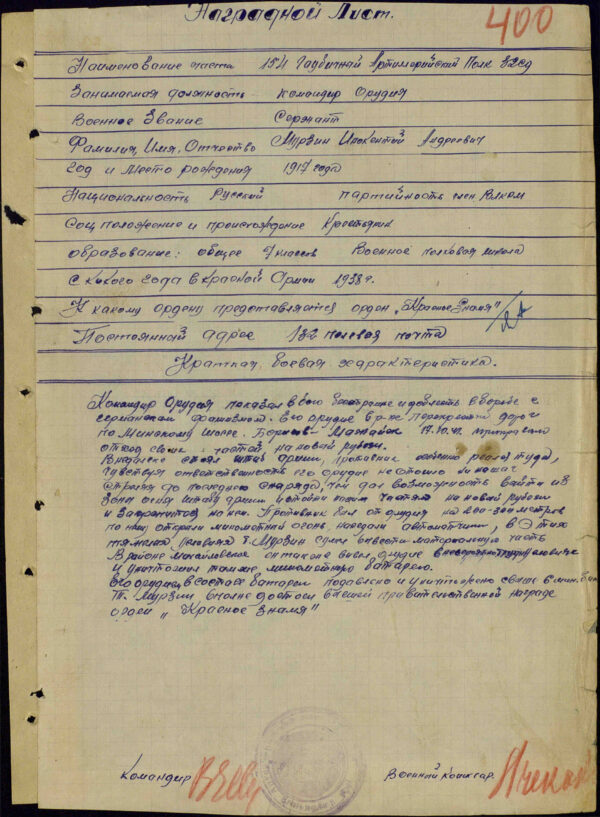 Наградной Лист.
400
Наименование части 154 Гаубичный Артиллерийский Полк 32сд
Занимаемая должность командир Орудия
Военное Звание Сержант
Фамилия, Имя, Отчество Мурзин Инокентий Андреевич
Год и Место рождения 1917 года
Национальность Русский партийность член
Соц положение и происхождение Крестьянин
образование: общее 7 классов Военное полковая школа
С какого года в Красной Армии 1938 г.
К какому ордену предоставляется орден „Красное Знамя"
Постоянный адрес 132 полевая почта
Краткая, боевая характеристика.
Командир Орудия показал в бою бесстрашие и доблесть в борьбе с
германским фашизмом. Его орудие в р-не перекрестка дорог
по Минскому шоссе, Можайск 17.10.41.
отход своих частей на новый рубеж.
штаб армии, Противник туда,
чувствуя ответственность его орудие не отошло ни на шаг
стреляя до последнего снаряда, чем дал возможность выйти из
зоны огня штабу армии и отойти нашим частям на новый рубеж
и закрепится на нем. Противник был от орудия на 200-300 метров
по ним открыли минометный огонь. наседали автоматчики, в этих
тяжелых условиях т. Мурзин сумел отвести материальную часть
В районе Михайловское он также вывел орудие
и уничтожил также минометную батарею.
Его орудием в составе батареи подавлено и уничтожено
т. Мурзин вполне достоин высшей правительственной награде
орден „Красное знамя"
Командир
Военный Комиссар.